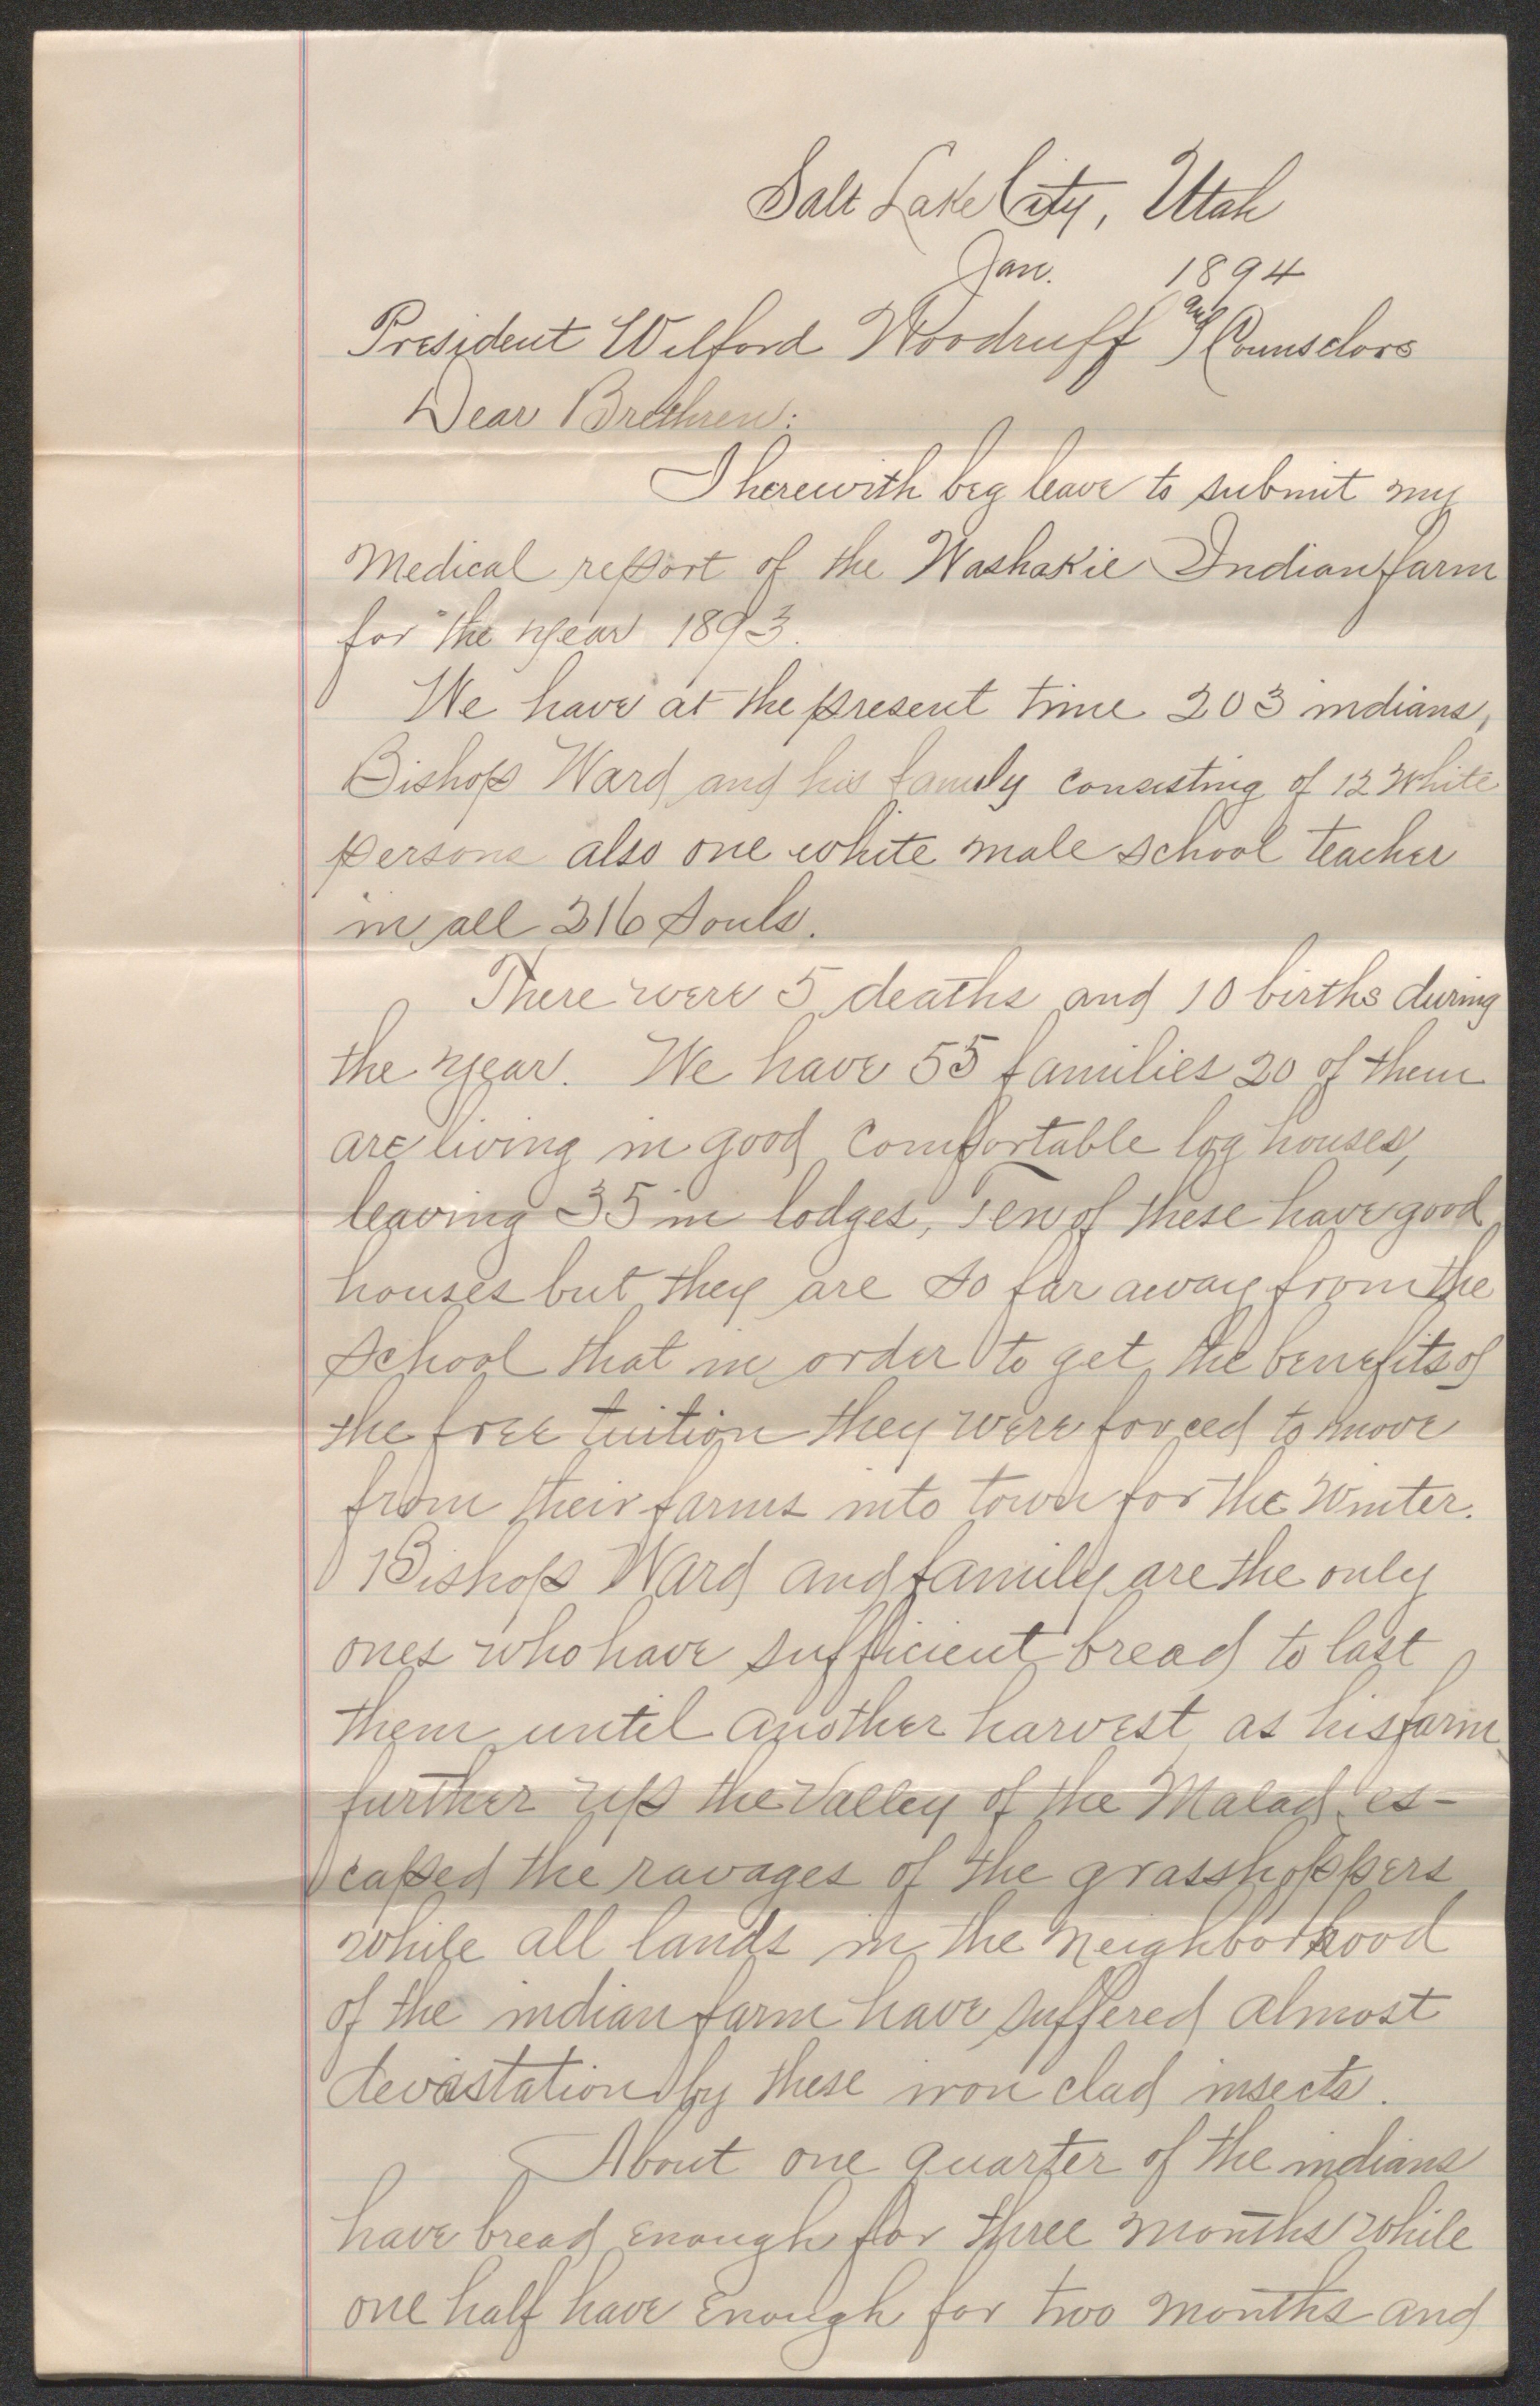 Salt Lake City, Utah
Jan. 1894
President Wilford Woodruff and Counselors
Dear Brethren:
I herewith beg leave to submit my
Medical report of the Washakie Indian farm
for the year 1893.
We have at the present time 203 indians,
Bishop Ward and his family consisting of 12 White
persons also one white male school teacher
in all 216 souls.
There were 5 deaths and 10 births during
the year. We have 55 families 20 of them
are living in good comfortable log houses,
leaving 35 in lodges, Ten of these have good
houses but they are so far away from the
school that in order to get the benefits of
the free tuition they were forced to move
from their farms into town for the Winter.
Bishop Ward and family are the only
ones who have sufficient bread to last
them until another harvest as his farm
further up the Valley of the Malad es-
caped the ravages of the grasshoppers
while all lands in the neighborhood
of the indian farm have suffered almost
devastation by these iron clad insects.
About one quarter of the indians
have bread enough for three months while
one half have enough for two months and